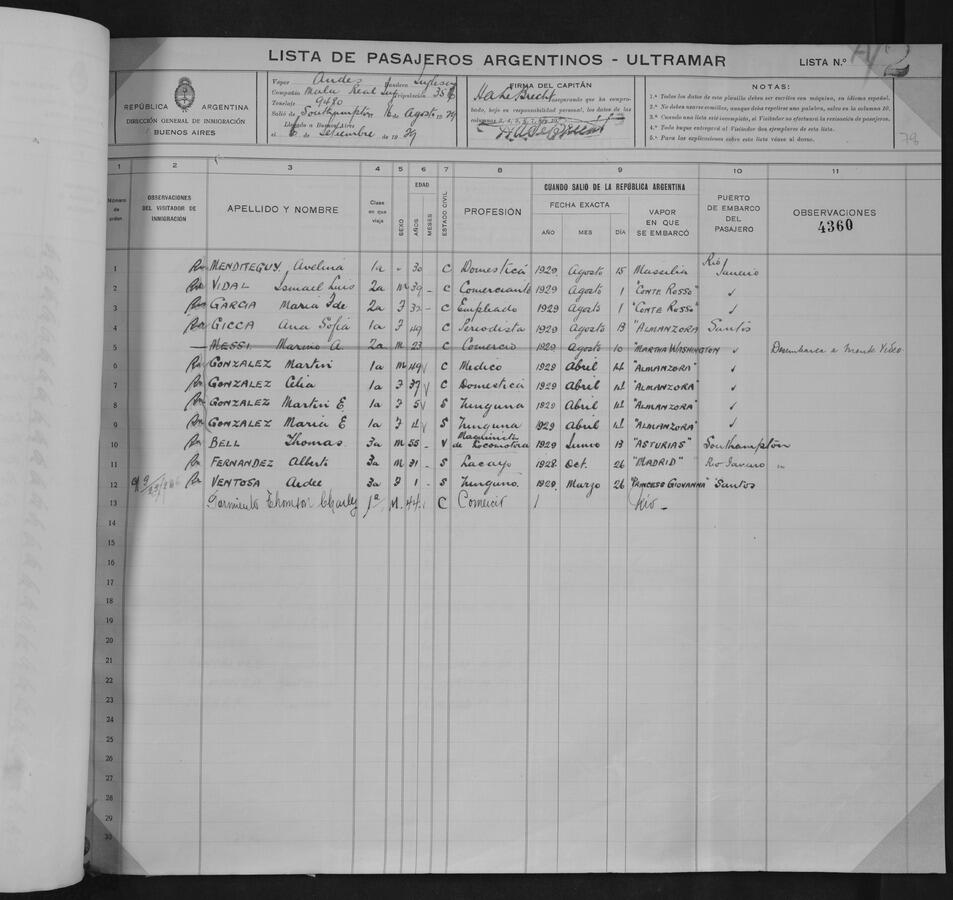 LISTA DE PASAJEROS ARGENTINOS - ULTRAMAR
LISTA N.º 2
REPÚBLICA ARGENTINA
DIRECCIÓN GENERAL DE INMIGRACIÓN
BUENOS AIRES
Vapor Andes Bandera Inglesa
Compañía Mala Real Ing Tripulación 35
Tonelaje 9480
Salió de Southampton 16 de Agosto 1929
Llegado a Buenos Aires
el 6 de Setiembre de 1929
FIRMA DEL CAPITÁN
asegurando que ha comprobado, bajo su responsabilidad personal, los datos de las
columnas 3, 4, 5, 6, 7,
NOTAS:
1.ª Todos los datos de esta planilla deben ser escritos con máquina, en idioma español.
2.ª No deben usarse comillas, aunque deba repetirse una palabra, salvo en la columna 10.
3.ª Cuando una lista esté incompleta, el Visitador no efectuará la revisación de pasajeros.
4.ª Todo buque entregará al Visitador dos ejemplares de esta lista.
5.ª Para las explicaciones sobre esta lista véase al dorso.
78
1 2 3 4 5 6 7 8 9 10 11
Número de orden
OBSERVACIONES DEL VISITADOR DE INMIGRACIÓN
APELLIDO Y NOMBRE
Clase en que viaja
SEXO
EDAD
AÑOS
MESES
ESTADO CIVIL
PROFESIÓN
CUANDO SALIO DE LA REPÚBLICA ARGENTINA
FECHA EXACTA
AÑO MES DÍA
VAPOR EN QUE SE EMBARCÓ
PUERTO DE EMBARCO DEL PASAJERO
OBSERVACIONES
4360
1 MENDITEGUY Avelina 1a - 30 C Domestica 1929 Agosto 15 Massilia Rio Janeiro
2 VIDAL Ismael Luis 2a M 39 - C Comerciante 1929 Agosto 1 "CONTE ROSSO" ✓
3 GARCIA Maria F de 2a F 32 - C Empleado 1929 Agosto 1 "CONTE ROSSO" ✓
4 GICCA Ana Sofia 1a F 49 C Periodista 1929 Agosto 13 "ALMANZORA" Santos
5 — MESSI Marino A. 2a M 23 C Comercio 1929 Agosto 10 "MARTHA WASHINGTON ✓ Desembarca a Monte Video
6 GONZALEZ Martin 1a M 49 C Medico 1929 Abril 14 "ALMANZORA" ✓
7 GONZALEZ Celia 1a F 37 C Domestica 1929 Abril 14 "ALMANZORA" ✓
8 GONZALEZ Martin E 1a F 5 S Ninguna 1929 Abril 14 "ALMANZORA" ✓
9 GONZALEZ Maria E 1a F 4 S Ninguna 1929 Abril 14 "ALMANZORA" ✓
10 BELL Thomas 3a M 55 - V Maquinista de Locomotora 1929 Junio 13 "ASTURIAS" Southampton
11 FERNANDEZ Alberto 3a M 31 - S Lacayo 1928 Oct. 26 "MADRID" Rio Janairo
12 VENTOSA 3a F 1 - S Ninguno 1929 Marzo 26 "PRINCESS GIOVANNA" Santos
13 Sarmiento Thomson Charley 1a M 44 C Comercio Rio -
14
15
16
17
18
19
20
21
22
23
24
25
26
27
28
29
30